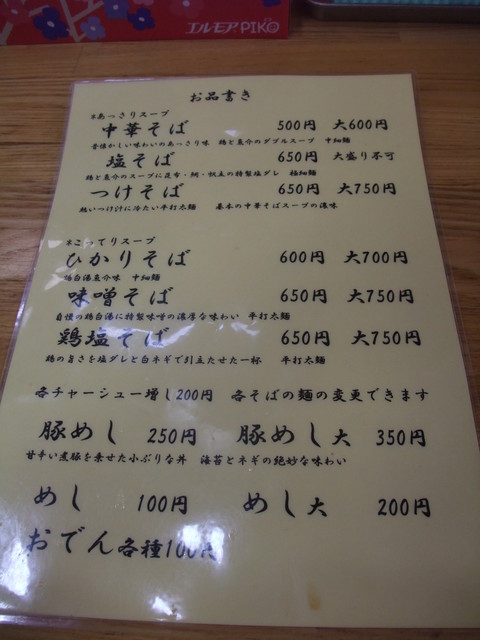 エルモア PiKO
お品書き
*あっさりスープ
中華そば 500円 大600円
昔懐かしい味わいのあっさり味 鶏と魚介のダブルスープ 中細麺
塩そば 650円 大盛り不可
鶏と魚介のスープに昆布・鯛・帆立の特製塩ダレ 極細麺
つけそば 650円 大750円
熱いつけ汁に冷たい平打太麺 基本の中華そばスープの濃味
*こってりスープ
ひかりそば 600円 大700円
鶏白湯魚介味 中細麺
味噌そば 650円 大750円
自慢の鶏白湯に特製味噌の濃厚な味わい 平打太麺
鶏塩そば 650円 大750円
鶏の旨さを塩ダレと白ネギで引立たせた一杯 平打太麺
各チャーシュー増し200円 各そばの麺の変更できます
豚めし 250円 豚めし大 350円
甘辛い煮豚を乗せた小ぶりな丼 海苔とネギの絶妙な味わい
めし 100円 めし大 200円
おでん各種100円